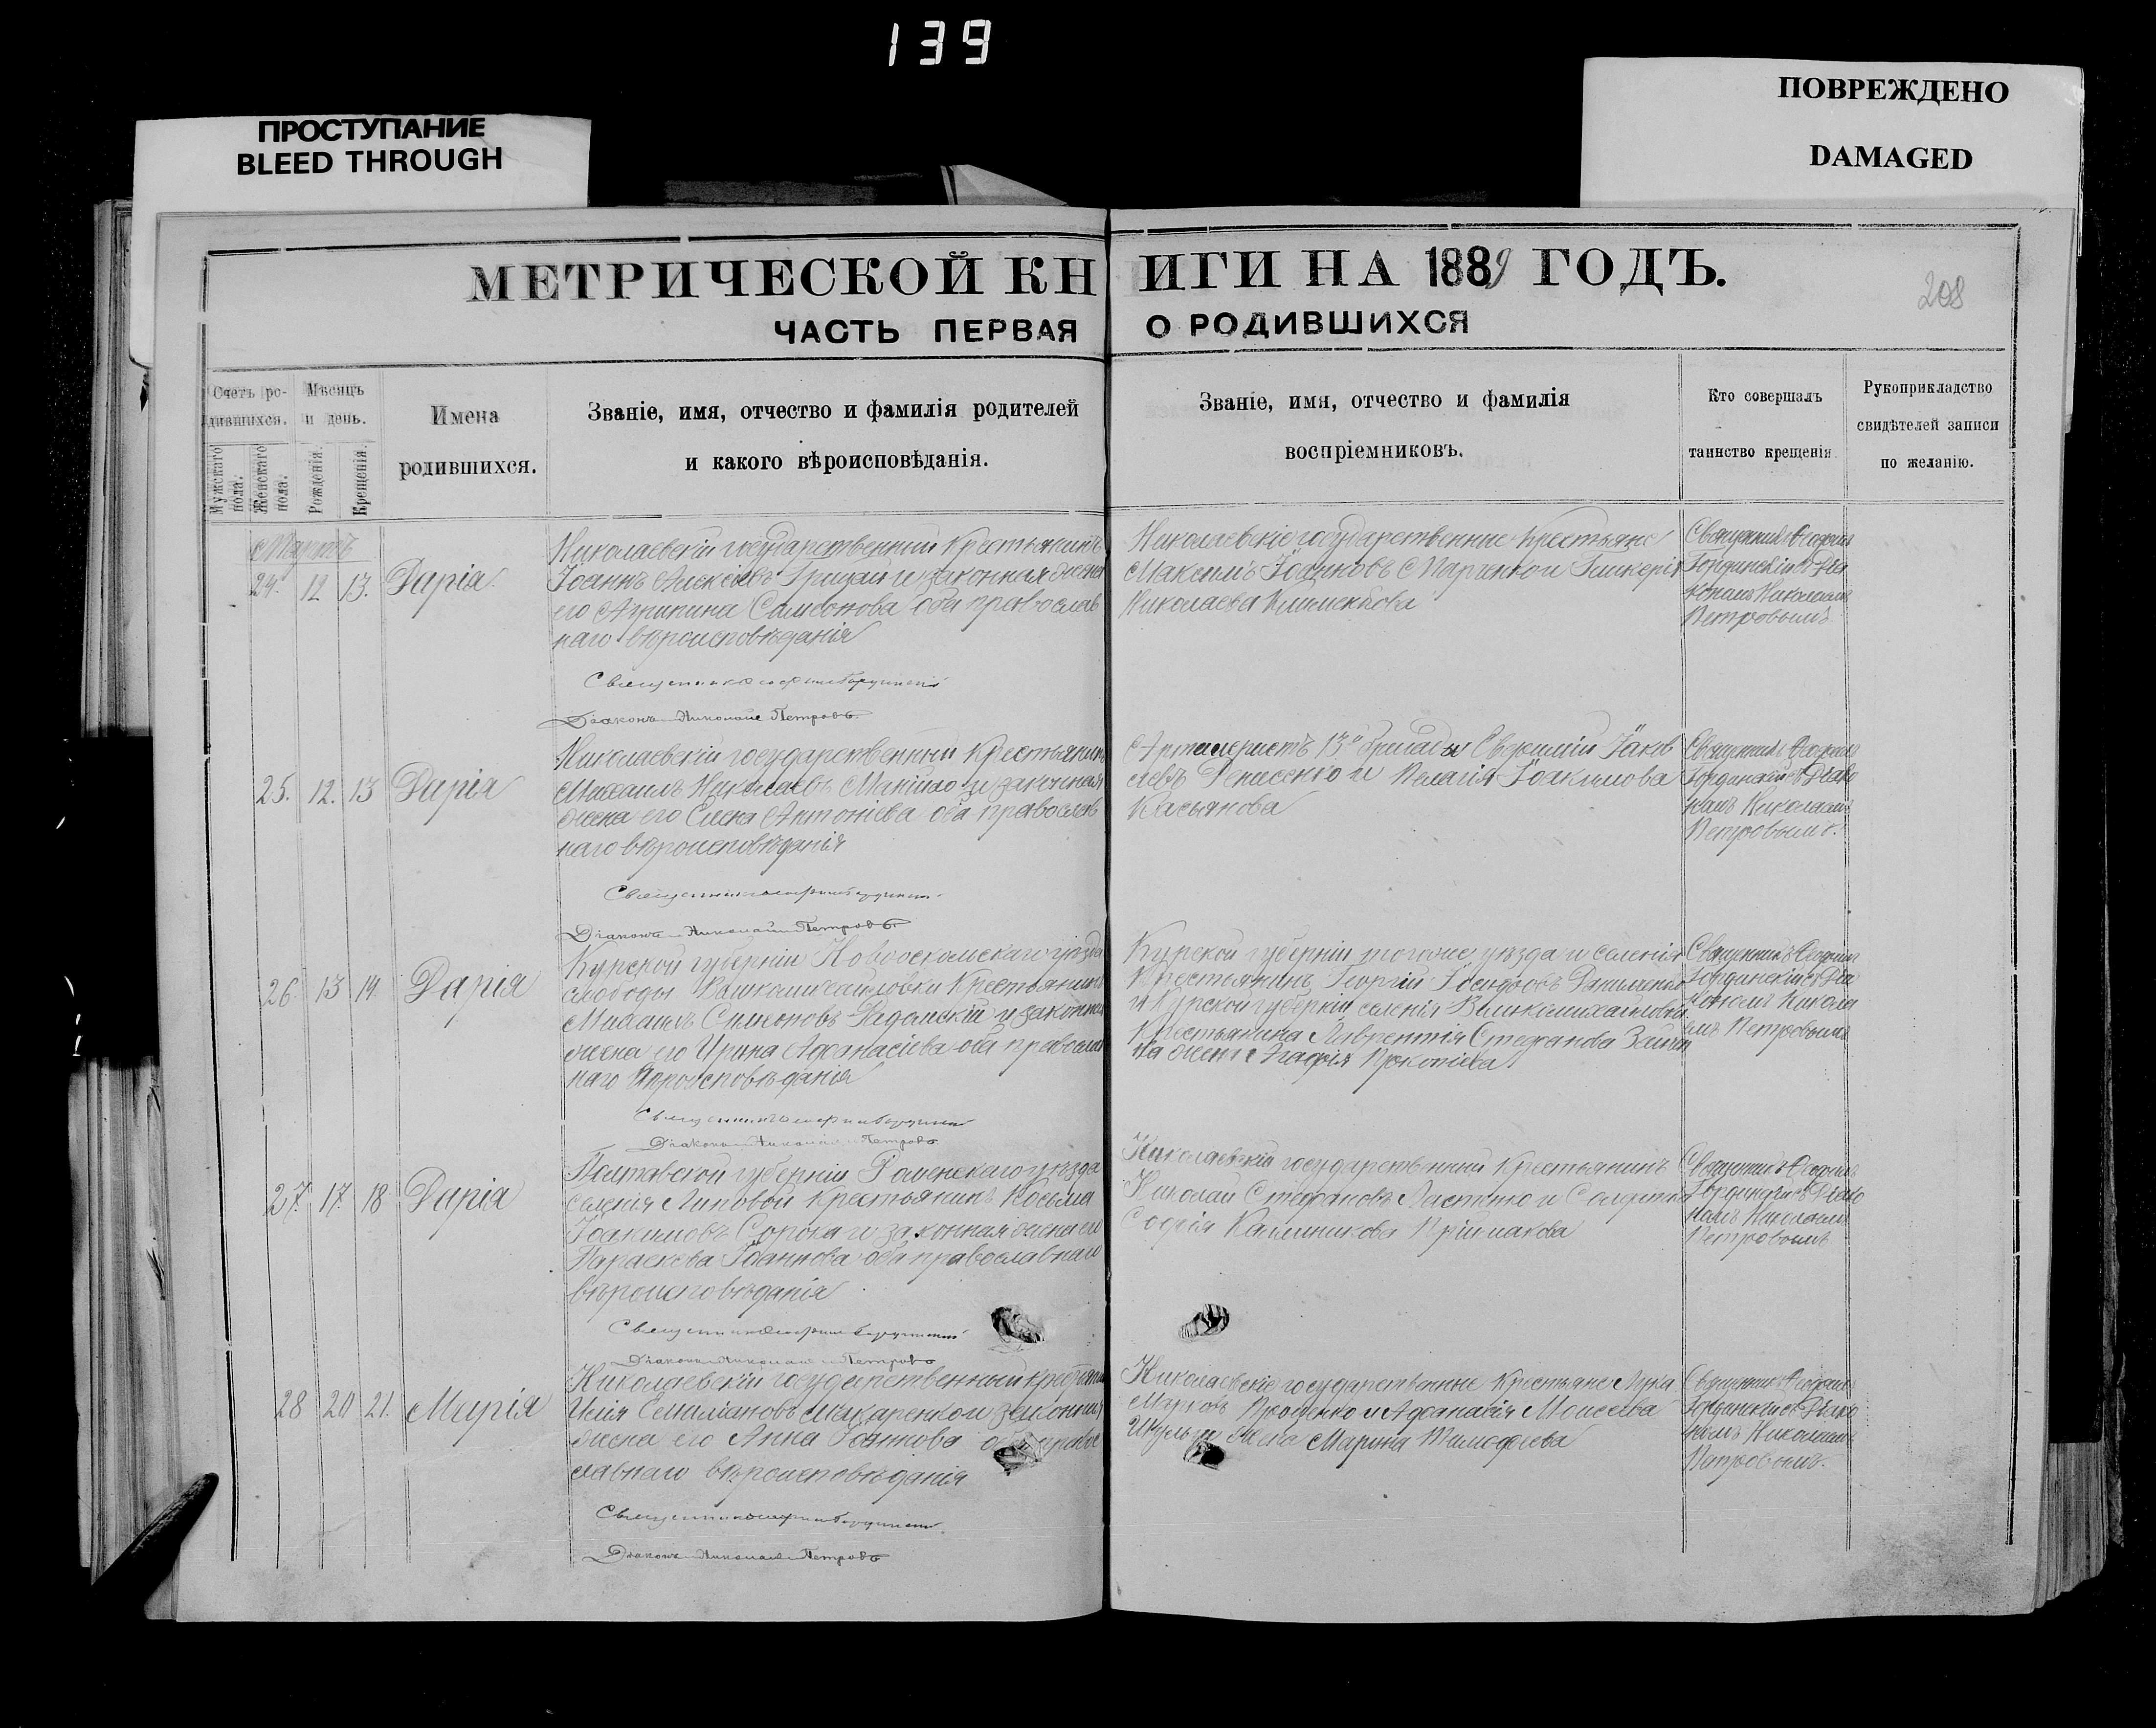 139
ПРОСТУПАНИЕ
BLEED THROUGH
ПОВРЕЖДЕНО
DAMAGED
МЕТРИЧЕСКОЙ КНИГИ НА 1889 ГОДЪ.
208
ЧАСТЬ ПЕРВАЯ О РОДИВШИХСЯ
Счетъ ро-
дившихся.
Мужскаго пола.
Женскаго пола.
Мѣсяцъ
и день.
Рожденія.
Крещенія.
Имена
родившихся.
Званіе, имя, отчество и фамилія родителей
и какого вѣроисповѣданія.
Званіе, имя, отчество и фамилія
воспріемниковъ.
Кто совершалъ
таинство крещенія
Рукоприкладство
свидѣтелей записи
по желанію.
Мартъ
24. 12 13. Дарія
Николаевскій государственный Крестьянинъ
Іоаннъ Алексіевъ Грицай и законная жена
его Агрипина Самсонова оба православ
наго вѣроисповѣданія
Священникъ
Діаконъ Николай Петровъ
Николаевскіе государственные Крестьяне
Максимъ Іоанновъ Марченко и Гликерія
Николаева Климентова
Священникъ
Діа
кономъ Николаемъ
Петровымъ
25. 12. 13 Дарія
Николаевскій государственный Крестьянинъ
Михаилъ Николаевъ и законная
жена его Елена Антоніева оба православ
наго вѣроисповѣданія
Священникъ
Діаконъ Николай Петровъ
Артилеристъ 13й бригады Евфимій Іаков
левъ Денисенко и Пелагія Іоакимова
Касьянова
Священникъ
Діако
номъ Николаемъ
Петровымъ.
26 13 14 Дарія
Курской губерніи Новооскольскаго уѣзда
слободы Крестьянинъ
Михаилъ Симеоновъ и законная
жена его Ирина Афанасіева оба православ
наго вѣроисповѣданія
Священникъ
Діаконъ Николай Петровъ
Курской губерніи тогоже уѣзда и селенія
Крестьянинъ Георгій Іосифовъ Даниленко
и Курской губерніи селенія Великомихайловки
Крестьянина Лаврентія Стефанова
на жена Агафія Прокопіева
Священникъ
Діа
кономъ Никола
емъ Петровымъ
27. 17. 18 Дарія
Полтавской губерніи Роменскаго уѣзда
селенія Липовой Крестьянинъ Косьма
Іоакимовъ Сорока и законная жена его
Параскева Іоаннова оба православнаго
вѣроисповѣданія
Священникъ
Діаконъ Николай Петровъ
Николаевскій государственный Крестьянинъ
Николай Стефановъ и
Софія Калинникова
Священникъ
Діако
номъ Николаемъ
Петровымъ
28 20 21. Марія
Николаевскій государственный крестьянинъ
Илія Емиліановъ Макаренко и законная
жена его Анна Іоаннова оба право
славнаго вѣроисповѣданія
Священникъ
Діаконъ Николай Петровъ
Николаевскіе государственные Крестьяне Лука
Марковъ и Афанасія Моисеева
жена Марина Тимофеева
Священникъ
Діако
номъ Николаемъ
Петровымъ.